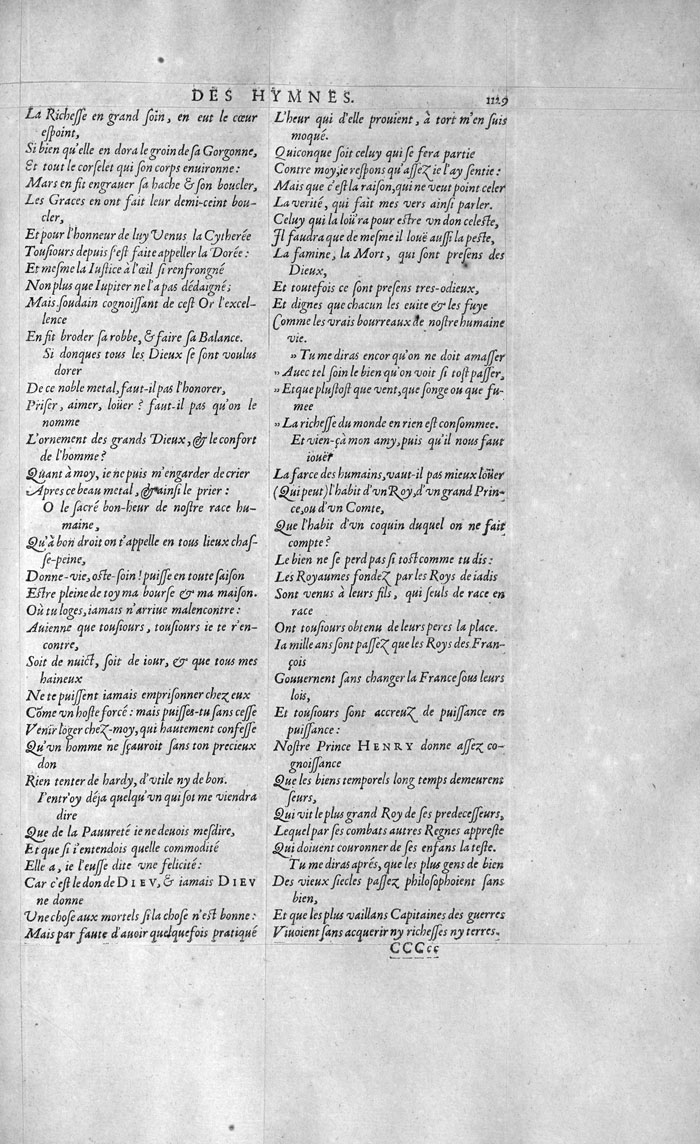 DES HYMNES.
1129
La Richesse en grand soin, en eut le cœur
espoint,
Si bien qu'elle en dora le groin de sa Gorgonne,
Et tout le corselet qui son corps enuironne:
Mars en fit engrauer sa hache & son boucler,
Les Graces en ont fait leur demi-ceint bou-
cler,
Et pour l'honneur de luy Venus la Cytherée
Tousiours depuis s'est faite appeller la Dorée:
Et mesme la Iustice à l'œil si renfrongné
Non plus que Iupiter ne l'a pas dédaigné;
Mais soudain cognoissant de cest Or l'excel-
lence
En fit broder sa robbe, & faire sa Balance.
Si donques tous les Dieux se sont voulus
dorer
De ce noble metal, faut-il pas l'honorer,
Priser, aimer, loüer? faut-il pas qu'on le
nomme
L'ornement des grands Dieux, & le confort
de l'homme?
Quant à moy, ie ne puis m'engarder de crier
Apres ce beau metal, & ainsi le prier:
O le sacré bon-heur de nostre race hu-
maine,
Qu'à bon droit on t'appelle en tous lieux chas-
se-peine,
Donne-vie, oste-soin! puisse en toute saison
Estre pleine de toy ma bourse & ma maison.
Où tu loges, iamais n'arriue malencontre:
Auienne que tousiours, tousiours ie te r'en-
contre,
Soit de nuict, soit de iour, & que tous mes
haineux
Ne te puissent iamais emprisonner chez eux
Cõme vn hoste forcé: mais puisses-tu sans cesse
Venir loger chez-moy, qui hautement confesse
Qu'vn homme ne sçauroit sans ton precieux
don
Rien tenter de hardy, d'vtile ny de bon.
I'entr'oy déja quelqu'vn qui sot me viendra
dire
Que de la Pauureté ie ne deuois mesdire,
Et que si i'entendois quelle commodité
Elle a, ie l'eusse dite vne felicité:
Car c'est le don de DIEV, & iamais DIEV
ne donne
Vne chose aux mortels si la chose n'est bonne:
Mais par faute d'auoir quelquefois pratiqué
L'heur qui d'elle prouient, à tort m'en suis
moqué.
Quiconque soit celuy qui se fera partie
Contre moy, ie respons qu'assez ie l'ay sentie:
Mais que c'est la raison, qui ne veut point celer
La verité, qui fait mes vers ainsi parler.
Celuy qui la loüra pour estre vn don celeste,
Il faudra que de mesme il louë aussi la peste,
La famine, la Mort, qui sont presens des
Dieux,
Et toutefois ce sont presens tres-odieux,
Et dignes que chacun les euite & les fuye
Comme les vrais bourreaux de nostre humaine
vie.
» Tu me diras encor qu'on ne doit amasser
» Auec tel soin le bien qu'on voit si tost passer,
» Et que plustost que vent, que songe ou que fu-
mee
» La richesse du monde en rien est consommee.
Et vien-çà mon amy, puis qu'il nous faut
iouër
La farce des humains, vaut-il pas mieux loüer
(Qui peut) l'habit d'vn Roy, d'vn grand Prin-
ce, ou d'vn Comte,
Que l'habit d'vn coquin duquel on ne fait
compte?
Le bien ne se perd pas si tost comme tu dis:
Les Royaumes fondez par les Roys de iadis
Sont venus à leurs fils, qui seuls de race en
race
Ont tousiours obtenu de leurs peres la place.
Ia mille ans sont passez que les Roys des Fran-
çois
Gouuernent sans changer la France sous leurs
lois,
Et tousiours sont accreuz de puissance en
puissance:
Nostre Prince HENRY donne assez co-
gnoissance
Que les biens temporels long temps demeurent
seurs,
Qui vit le plus grand Roy de ses predecesseurs,
Lequel par ses combats autres Regnes appreste
Qui doiuent couronner de ses enfans la teste.
Tu me diras aprés, que les plus gens de bien
Des vieux siecles passez philosophoient sans
bien,
Et que les plus vaillans Capitaines des guerres
Viuoient sans acquerir ny richesses ny terres.
CCCcc